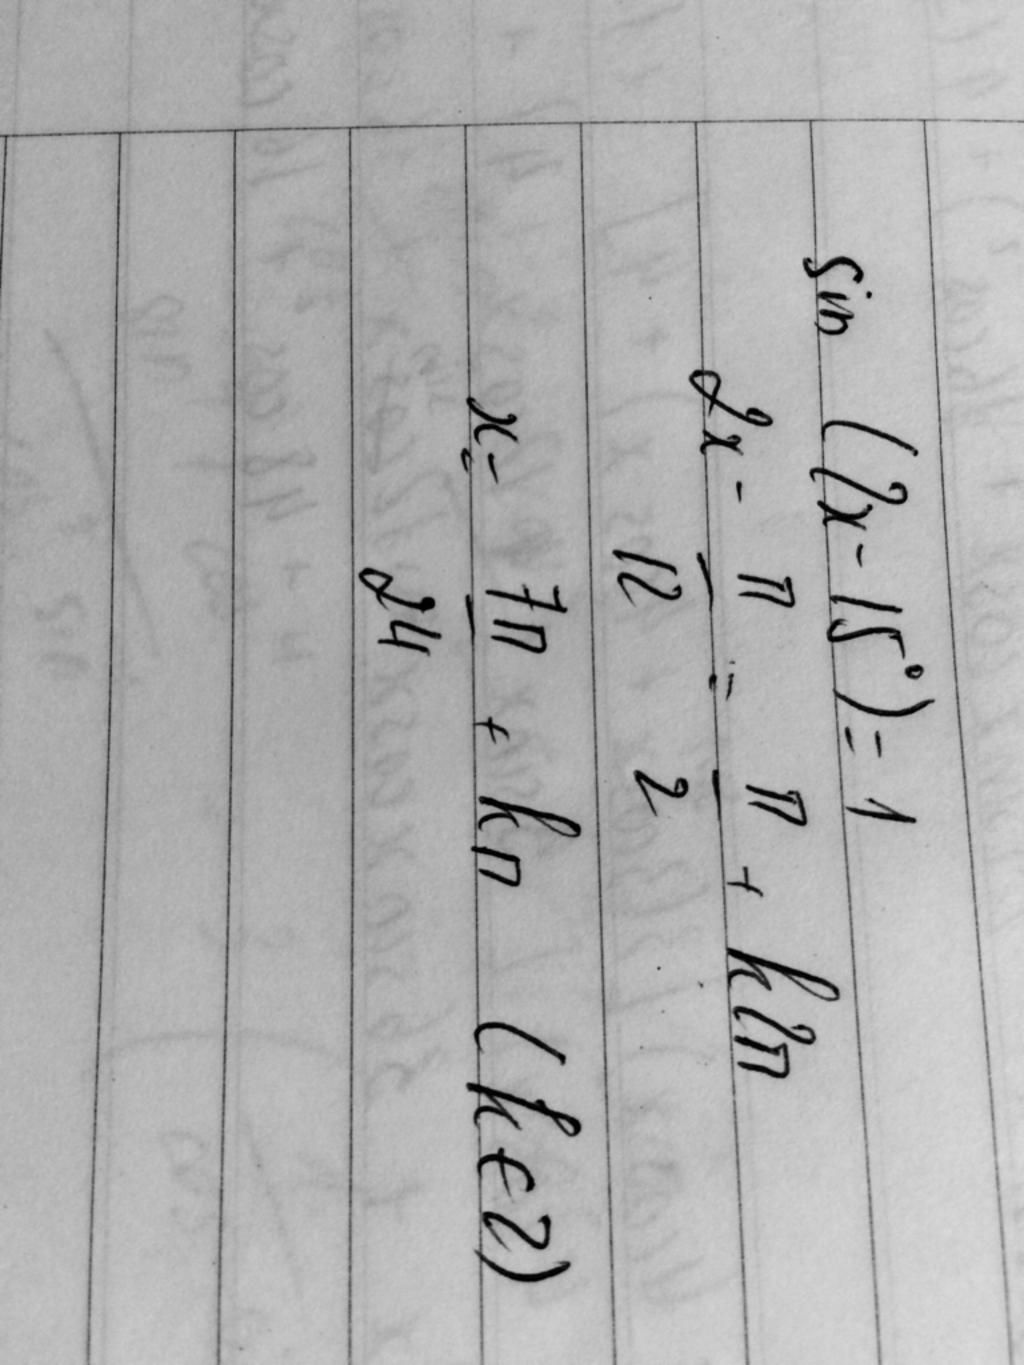 sin (2x - 15°) = 1
2x - π/12 = π/2 + k2π
x = 7π/24 + kπ (k ∈ Z)